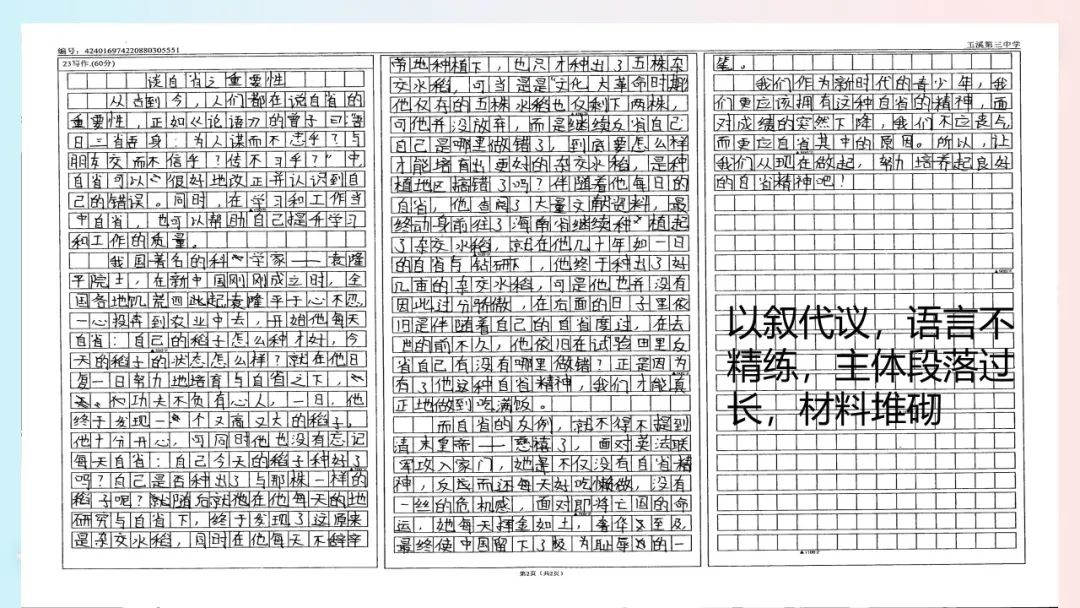 编号：424016974220880305551
玉溪第三中学
23写作.(60分)
谈自省之重要性
从古到今，人们都在说自省的
重要性，正如《论语》的曾子曰："吾
日三省吾身：为人谋而不忠乎？与
朋友交而不信乎？传不习乎？"中，
自省可以很好地改正并认识到自
己的错误。同时，在学习和工作当
中自省，也可以帮助自己提升学习
和工作的质量。
我国著名的科学家——袁隆
平院士，在新中国刚刚成立时，全
国各地饥荒四此起袁隆平于心不忍，
一心投奔到农业中去，开始他每天
自省：自己的稻子怎么种才好，今
天的稻子的状态怎么样？就在他日
复一日努力地培育与自省之下，
功夫不负有心人，一日，他
终于发现一个又高又大的稻子。
他十分开心，可同时他也没有忘记
每天自省：自己今天的稻子种好了
吗？自己是否种出了与那株一样的
稻子呢？就随后就他在他每天的地
研究与自省下，终于发现了这原来
是杂交水稻，同时在他每天不辞辛
劳地种植下，也只才种出了五株杂
交水稻，可当是是"文化大革命时期
他仅存的五株水稻也仅剩下两株，
可他并没放弃，而是继续反省自己
自己是哪里做错了，到底要怎么样
才能培育出更好的杂交水稻，是种
植地区搞错了吗？伴随着他每日的
自省，他查阅了大量文献资料，最
终动身前往了海南省继续种植起
了杂交水稻，就在他几十年如一日
的自省与钻研下，他终于种出了好
几亩的杂交水稻，可是他也并没有
因此过分骄傲，在后面的日子里依
旧是伴随着自己的自省度过，在去
世的前不久，他依旧在试验田里反
省自己有没有哪里做错？正是因为
有了他这种自省精神，我们才能真
正地做到吃满饭。
而自省的反例，就不得不提到
清末皇帝——慈禧了，面对英法联
军攻入家门，她是不仅没有自省精
神，反应而还每天好吃懒做，没有
一丝的危机感，面对即将亡国的命
运，她每天挥金如土，奢侈至及，
最终使中国留下了极为耻辱的一
笔。
我们作为新时代的青少年，我
们更应该拥有这种自省的精神，面
对成绩的突然下降，我们不应丧气，
而更应自省其中的原因。所以，让
我们从现在做起，努力培养起良好
的自省精神吧！
以叙代议，语言不
精练，主体段落过
长，材料堆砌
第2页（共2页）